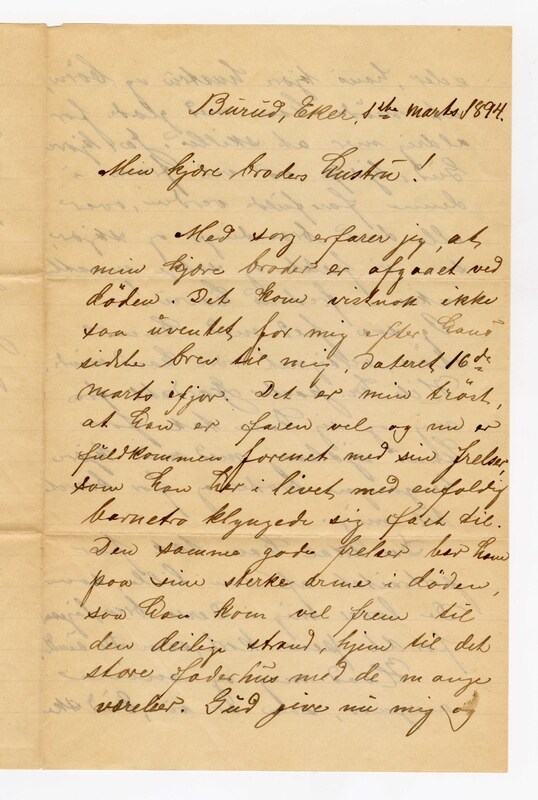 Burud, Eker, 1ste marts 1894.
Min kjære broders hustru!
Med sorg erfarer jeg, at
min kjære broder er afgaaet ved
döden. Det kom vistnok ikke
saa uventet for mig efter hans
sidste brev til mig, dateret 16de
marts ifjor. Det er min tröst,
at han er faren vel og nu er
fuldkommen forenet med sin frelser,
som han her i livet med enfoldig
barnetro klyngede sig fast til.
Den samme gode frelser bar ham
paa sine sterke arme i döden,
saa han kom vel frem til
den deilige strand hjem til det
store faderhus med de mange
værelser. Gud give nu mig og